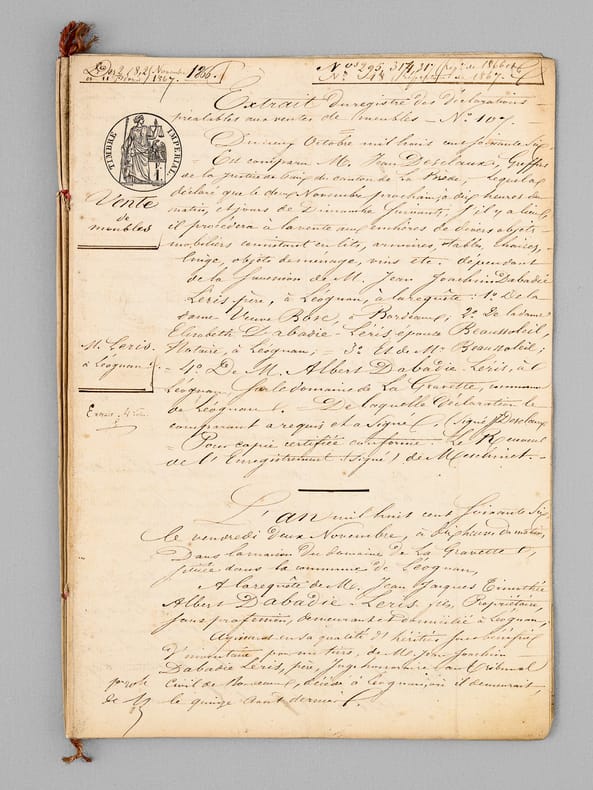 Novembre 1866.
1867.
Nos 295, 314, 315
1867.
TIMBRE IMPERIAL
Vente
de
meubles
M. Leris
à Léognan.
Extrait du registre des déclarations
préalables aux ventes de meubles - No 107.
Octobre mil huit cent soixante Six
Est comparu M. Jean Desclaux, Greffier
de la justice de paix du canton de La Brède, lequel a
déclaré que le deux Novembre prochain, à dix heures du
matin, et jours de Dimanche suivants, s'il y a lieu,
il procédera à la vente aux enchères de divers objets
mobiliers consistant en lits, armoires, table, chaises,
linge, objets de ménage, vins etc. dépendant
de la succession de M. Jean Joachim Dabadie
Léris père, à Léognan, à la requête : 1o De la
dame Veuve Bosc, à Bordeaux; 2o De la dame
Elisabeth Dabadie Léris épouse Beaussoleil,
Notaire, à Léognan; 3o Et de Mr Beaussoleil;
4o De M. Albert Dabadie Léris, à
Léognan, sur le domaine de La Gravette, commune
de Léognan. De laquelle Déclaration le
comparant a requis et a signé. (signé) Desclaux
Pour copie certifiée conforme. Le Receveur
de l'Enregistrement (signé) de
L'an mil huit cent soixante Six,
le vendredi deux Novembre, à dix heures du matin,
Dans la maison du domaine de La Gravette,
située dans la commune de Léognan,
A la requête de M. Jean Jacques Timothée
Albert Dabadie - Léris fils, Propriétaire,
sans profession, demeurant et domicilié à Léognan,
Agissant en sa qualité d'héritier sous bénéfice
d'inventaire, pour un tiers, de M. Jean Joachim
Dabadie Leris, père, Juge honoraire au Tribunal
Civil de Bordeaux, décédé à Léognan, où il demeurait,
le quinze Août dernier.